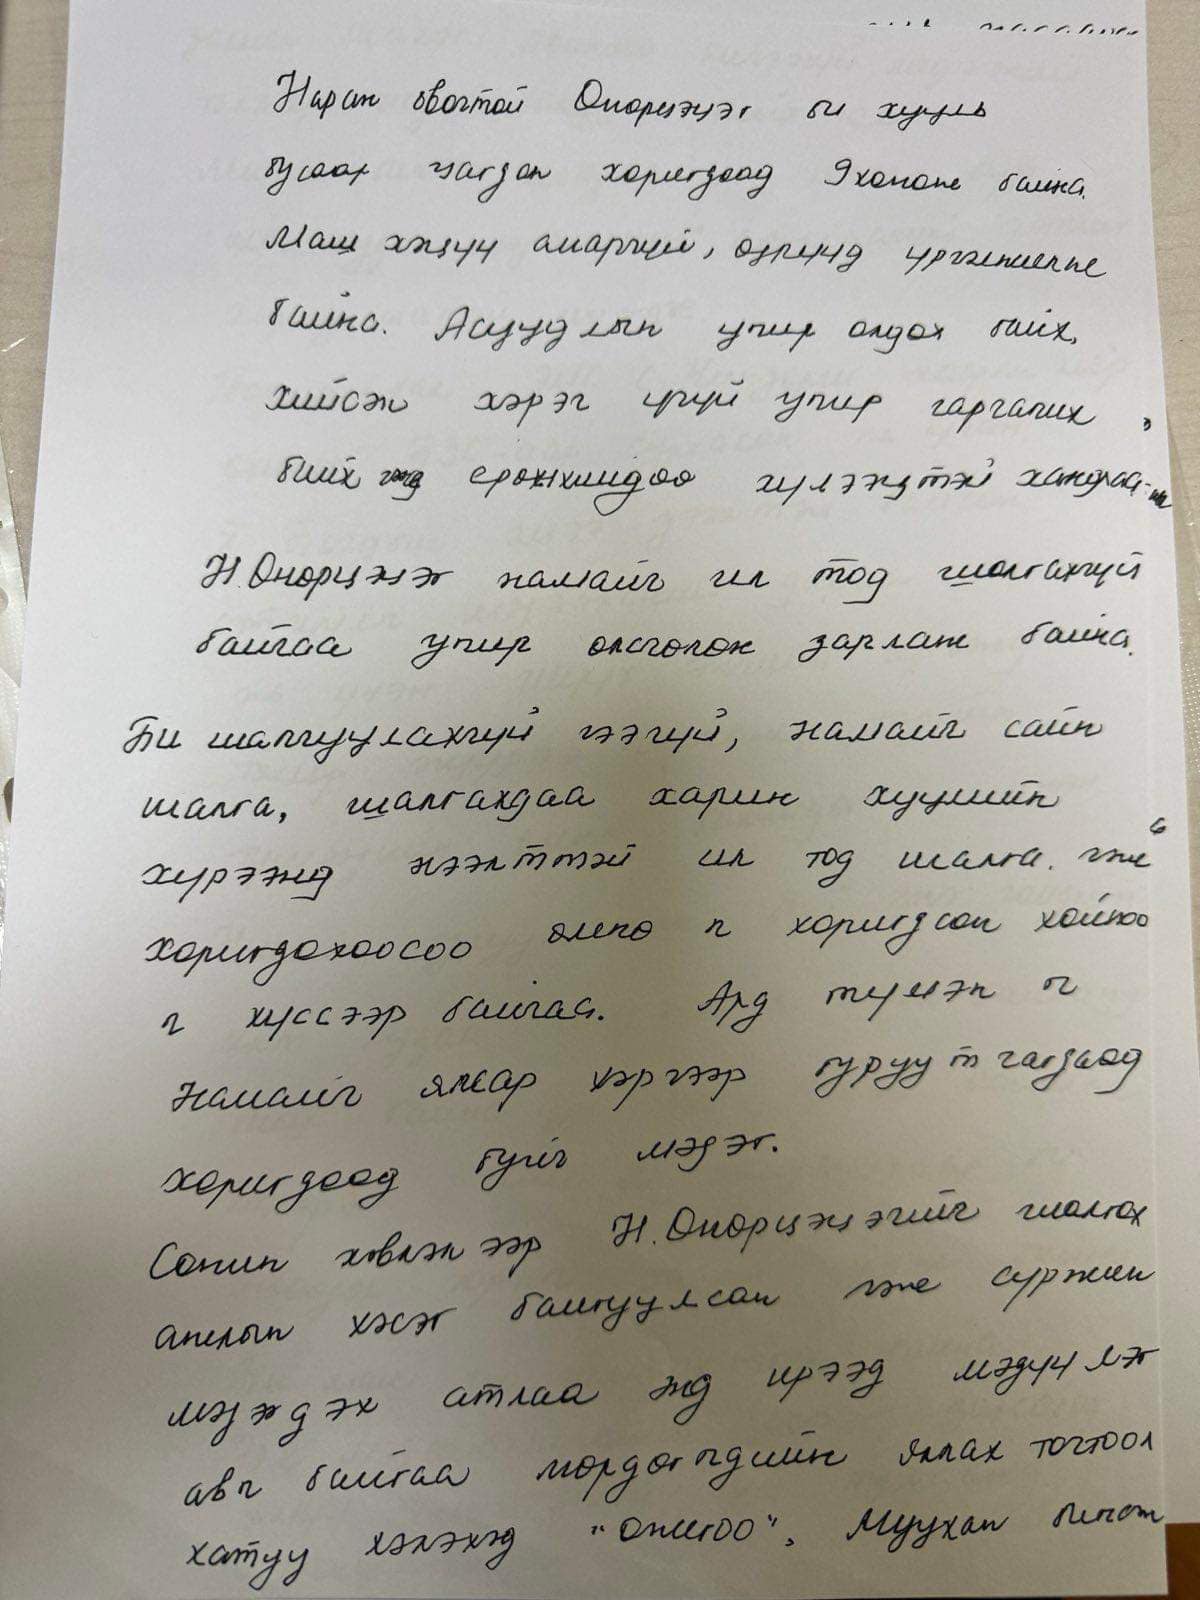 Наран овогтой Өнөрцэцэг би хууль
бусаар цагдан хоригдоод байна.
Маш хэцүү амаргүй, өдрүүд үргэлжилж
байна. Асуудлын учир олдох байх,
хийсэн хэрэг үгүй учир гаргачих
байх гэж ерөнхийдөө хүлээцтэй хандлаа
Н.Өнөрцэцэг намайг ил тод шалгахгүй
байгаа учир өлсгөлөн зарлаж байна.
Би шалгуулахгүй гээгүй, намайг сайн
шалга, шалгахдаа харин хуулийн
хүрээнд нээлттэй ил тод шалга. гэж
хоригдохоосоо өмнө ч хоригдсон хойноо
ч хүссээр байгаа. Ард түмэн ч
намайг ямар хэргээр буруутгагдаад
хоригдоод буйг мэдэг.
Сонин хэвлэлээр Н.Өнөрцэцэгийг шалгах
ажлын хэсэг байгуулсан гэж сурзжин
мэдэгдэх атлаа энд ирээд мэдүүлэг
авч байгаа мөрдөгчдийн яллах тогтоол
хатуу хэлэхэд "онигоо". Муухан